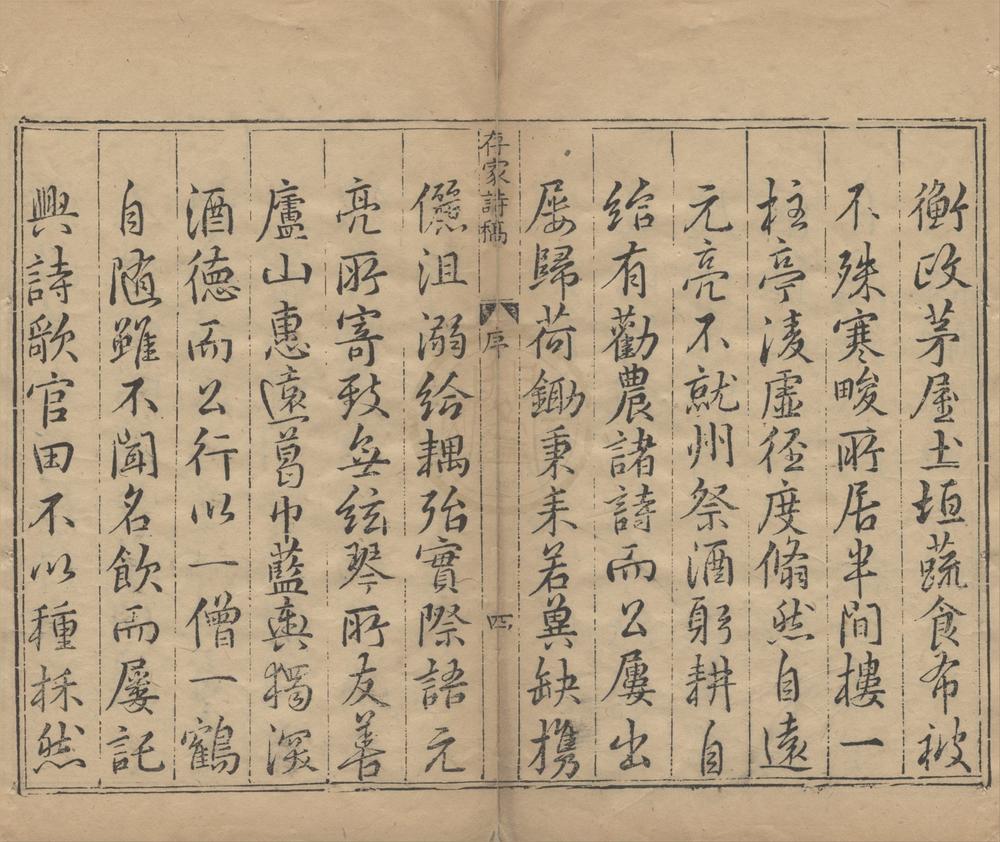 衡政茅屋土垣蔬食布被
不殊寒畯所居半間樓一
柱亭淩虛徑度翛然自遠
元亮不就州祭酒躬耕自
給有勸農諸詩而公屢出
屢歸荷鋤秉耒若冀缺攜
存家詩稿
序
四
儷沮溺給耦殆實際語元
亮所寄致無絃琴所友善
廬山惠遠葛巾藍輿獨深
酒德而公行以一僧一鶴
自随雖不聞名飲而屡託
興詩歌官田不以種秫然